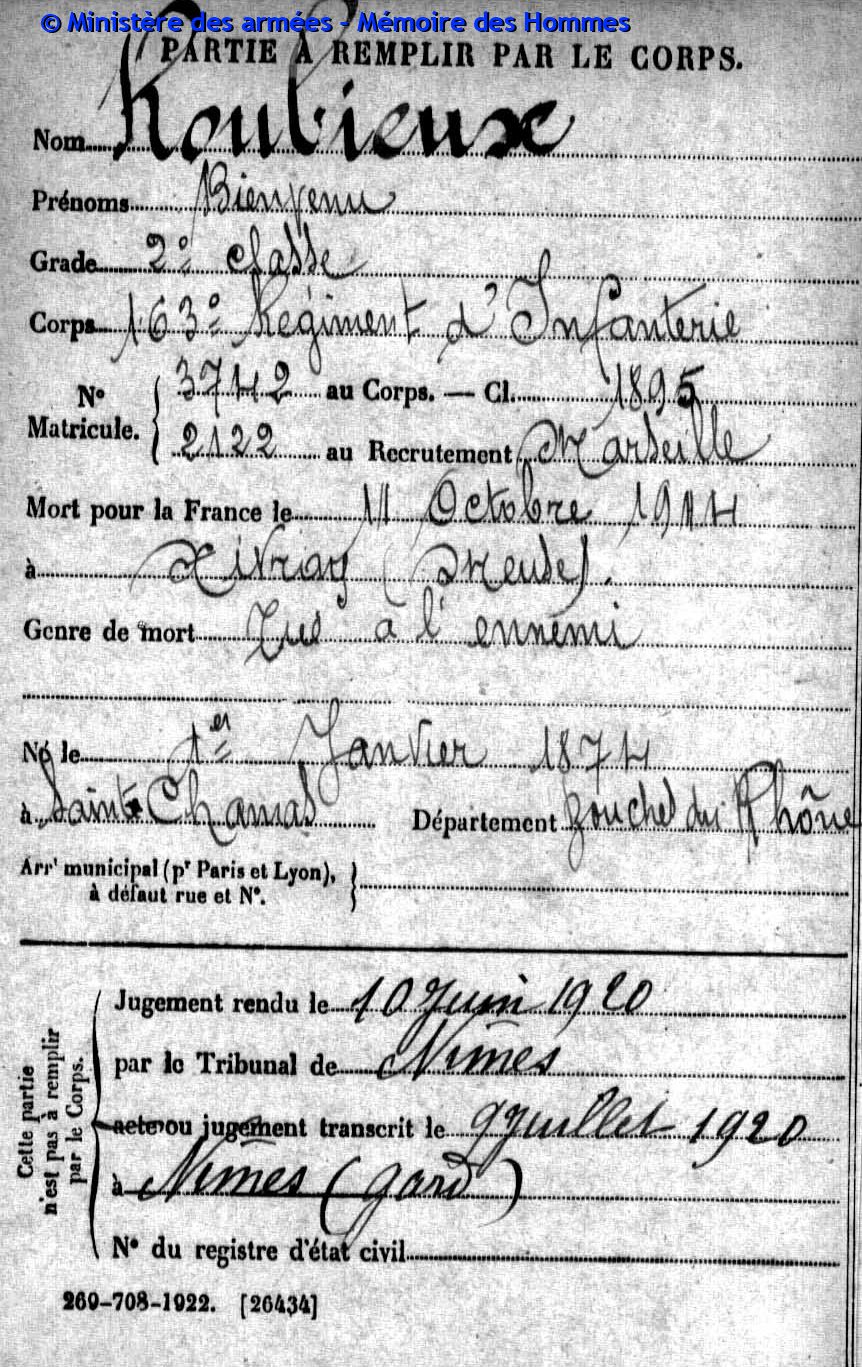 © Ministère des armées - Mémoire des Hommes
PARTIE À REMPLIR PAR LE CORPS.
Nom Roubieux
Prénoms Bienvenu
Grade 2e classe
Corps 163e Régiment d'Infanterie
No Matricule. { 3742 au Corps. — Cl. 1895
2122 au Recrutement Marseille
Mort pour la France le 11 Octobre 1914
à Xivray (Meuse).
Genre de mort Tué à l'ennemi
Né le 1er Janvier 1874
à Saint-Chamas Département Bouches du Rhône
Arrt municipal (pr Paris et Lyon), }
à défaut rue et No.
Cette partie
n'est pas à remplir
par le Corps.
Jugement rendu le 10 Juin 1920
par le Tribunal de Nîmes
acte ou jugement transcrit le 9 Juillet 1920
à Nîmes (Gard)
No du registre d'état civil
269-708-1922. [26434]